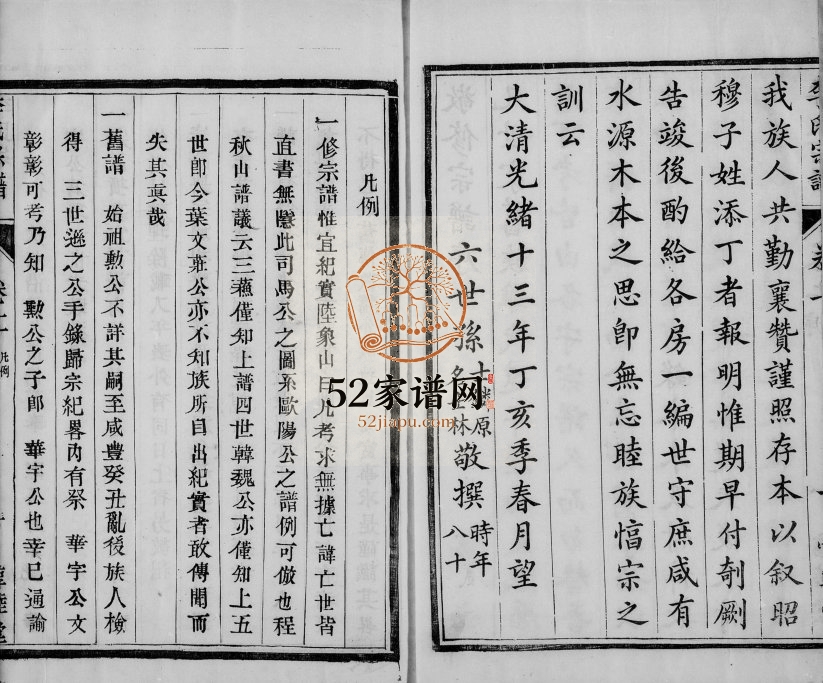 我族人共勤襄贊謹照存本以叙昭
穆子姓添丁者報明惟期早付剞劂
告竣後酌給各房一編世守庶咸有
水源木本之思卽無忘睦族愊宗之
訓云
大清光緒十三年丁亥季春月望
六世孫 原 林 敬撰 時年八十
52家谱网
52jiapu.com
凡例
一修宗譜惟宜紀實陸象山曰凡考求無據亡諱亡世皆
直書無隱此司馬公之圖系歐陽公之譜例可倣也程
秋山譜議云三蘇僅知上譜四世韓魏公亦僅知上五
世卽今葉文莊公亦不知族所自出紀實者敢傳聞而
失其眞哉
一舊譜 始祖勲公不詳其嗣至咸豊癸丑亂後族人檢
得 三世遜之公手錄歸宗紀畧內有祭 華宇公文
彰彰可考乃知 勲公之子郎 華宇公也幸巳通諭
李氏宗譜
卷之一
凡例